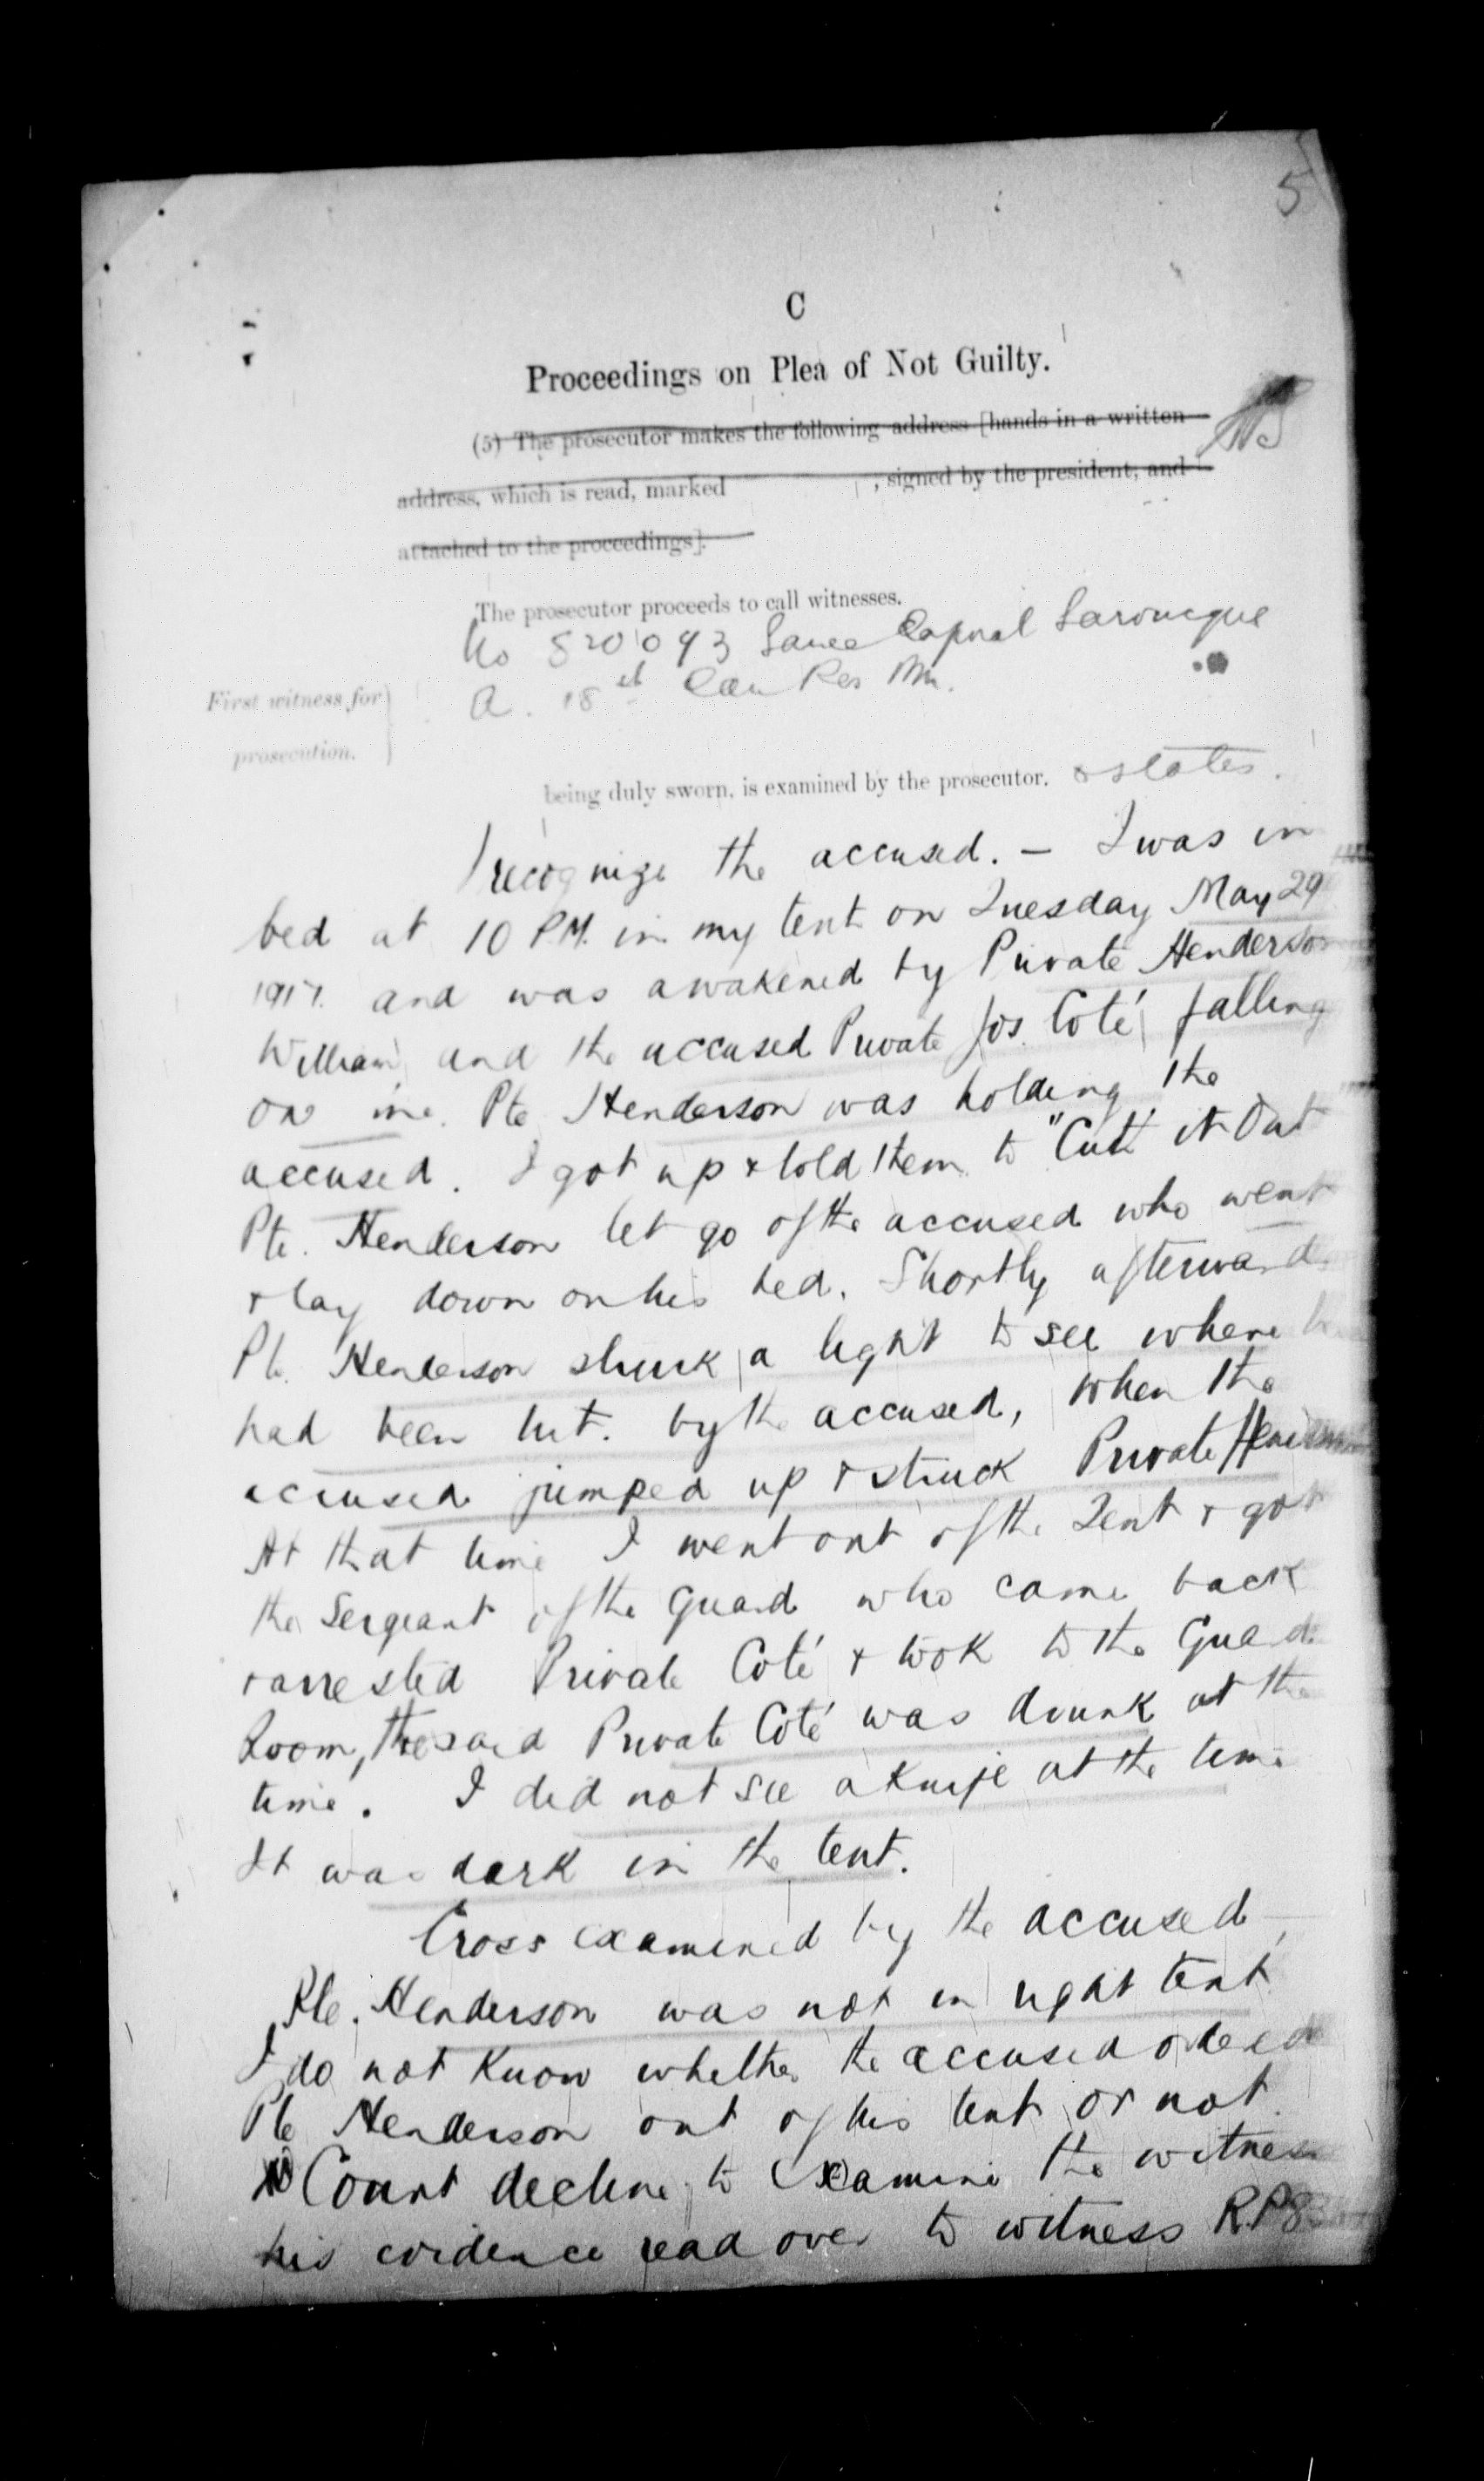 5
C
Proceedings on Plea of Not Guilty.
(5) The prosecutor makes the following address [hands in a written
address, which is read, marked , signed by the president, and
attached to the proceedings].
The prosecutor proceeds to call witnesses.
No 820093 Lance Corporal Larocque
First witness for
A. 18th Can Res Bn.
prosecution.
being duly sworn, is examined by the prosecutor. & states.
I recognize the accused. – I was in
bed at 10 P.M. in my tent on Tuesday May 29
1917. and was awakened by Private Henderson
William and the accused Private Jos. Coté falling
on me. Pte Henderson was holding the
accused. I got up & told them to "Cutt it Out
Pte. Henderson let go of the accused who went
& lay down on his bed. Shortly afterwards
Pte. Henderson struck a light to see where he
had been hit. by the accused, when the
accused jumped up & struck Private Henderson
At that time I went out of the Tent & got
the Sergeant of the Guard who came back
& arrested Private Coté & took to the Guard
Room, the said Private Coté was drunk at the
time. I did not see a Knife at the time
It was dark in the tent.
Cross examined by the accused –
Pte. Henderson was not in right tent.
I do not Know whether the accused ordered
Pte Henderson out of his tent or not
Court decline to Examine the witness
his evidence read over to witness R.P 83